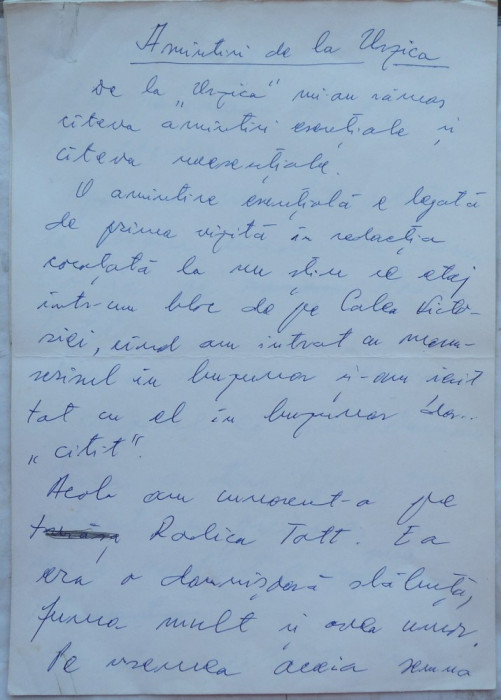 Amintiri de la Urzica
De la „Urzica" mi-au rămas
cîteva amintiri esențiale și
cîteva neesențiale.
O amintire esențială e legată
de prima vizită în redacția
cocoțată la nu știu ce etaj
într-un bloc de pe Calea Victo-
riei, cînd am intrat cu manu-
scrisul în buzunar și-am ieșit
tot cu el în buzunar dar..
„citit".
Acolo am cunoscut-o pe
Rodica Tott. Ea
era o domnișoară slăbuță,
fuma mult și avea umor.
Pe vremea aceia semna